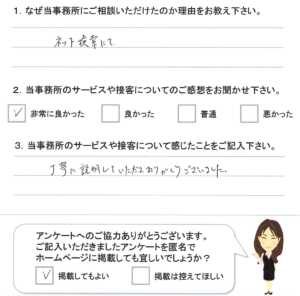 1. なぜ当事務所にご相談いただけたのか理由をお教え下さい。
ネット検索にて
2. 当事務所のサービスや接客についてのご感想をお聞かせ下さい。
✓ 非常に良かった 良かった 普通 悪かった
3. 当事務所のサービスや接客について感じたことをご記入下さい。
丁寧に説明していただきありがとうございました。
アンケートへのご協力ありがとうございます。
ご記入いただきましたアンケートを匿名で
ホームページに掲載しても宜しいでしょうか?
✓ 掲載してもよい 掲載は控えてほしい